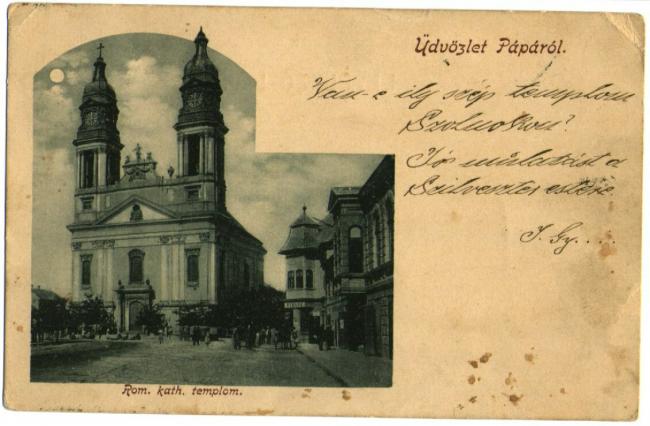 Üdvözlet Pápáról.
Van-e ily szép templom
Szolnokon?
Jó mulatást a
Szilveszter estére
J. Gy....
Rom. kath. templom.